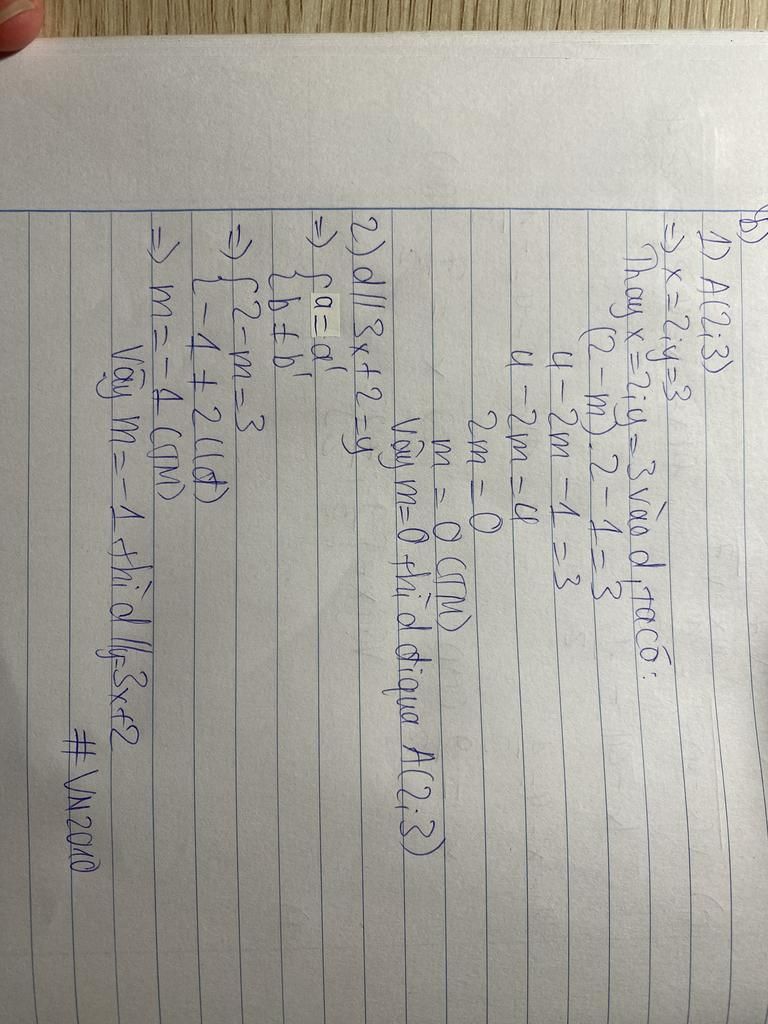 b)
1) A(2;3)
=> x = 2; y = 3
Thay x = 2; y = 3 vào d, ta có:
(2 - m). 2 - 1 = 3
4 - 2m - 1 = 3
4 - 2m = 4
2m = 0
m = 0 (TM)
Vậy m = 0 thì d đi qua A(2;3)
2) d // 3x + 2 = y
=> { a = a'
{ b ≠ b'
=> { 2 - m = 3
{ -1 ≠ 2 (lđ)
=> m = -1 (TM)
Vậy m = -1 thì d // y = 3x + 2
# VN2010